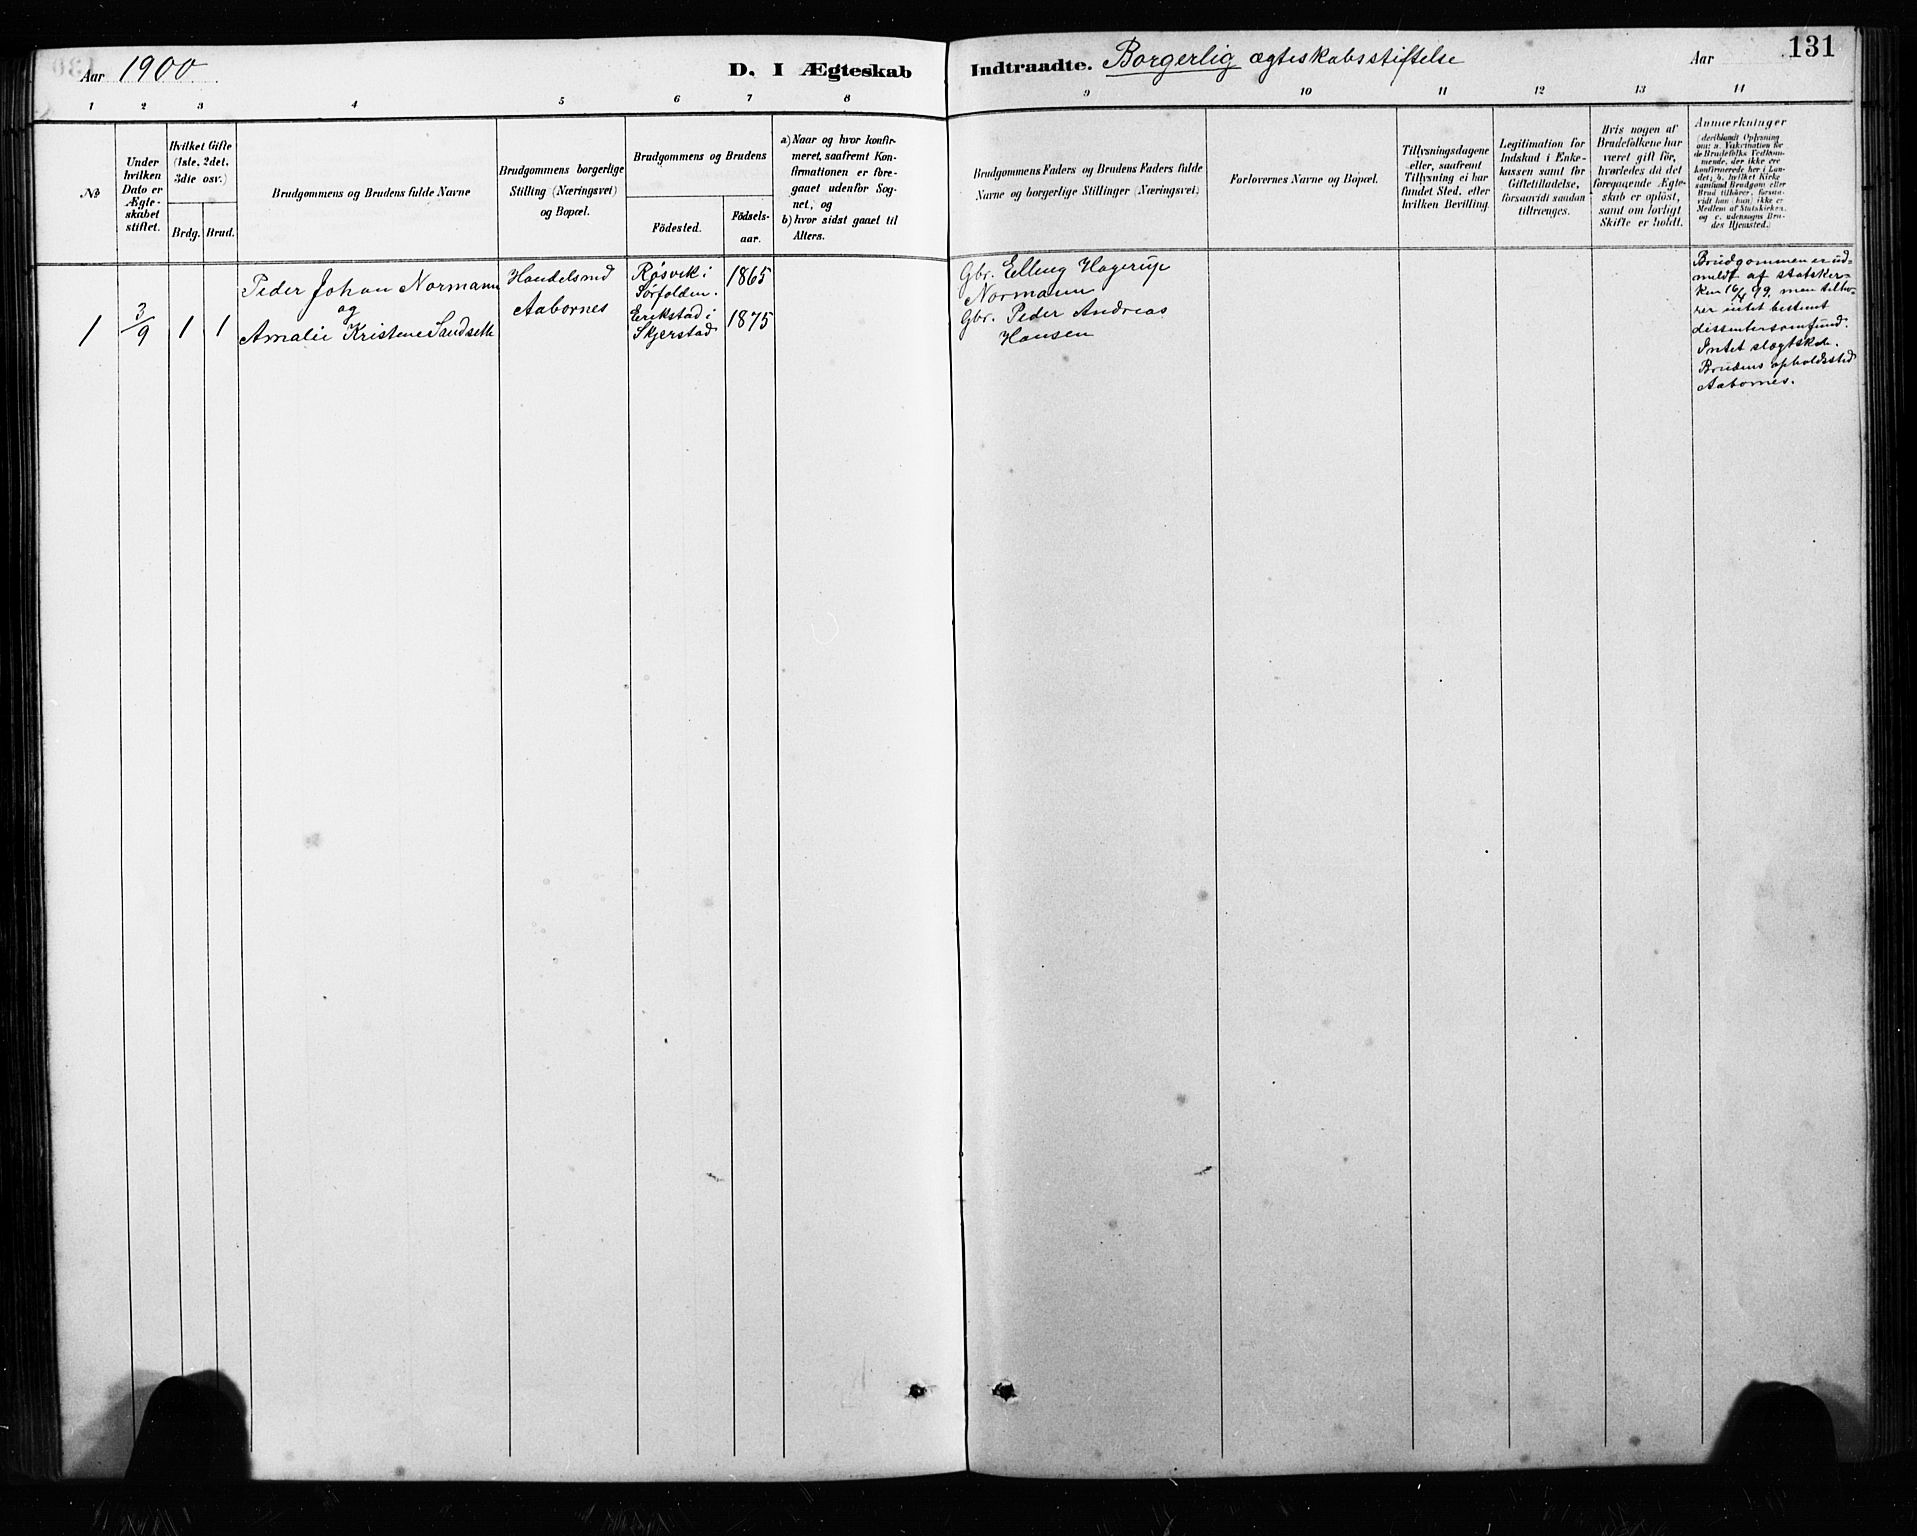 Aar 1900
D. I Ægteskab
Indtraadte. Borgerlig ægteskabsstiftelse
Aar
131
1 2 3 4 5 6 7 8
9 10 11 12 13 14
No
Under
hvilken
Dato er
Ægte-
skabet
stiftet.
Hvilket Gifte
(1ste, 2det,
3die osv.)
Brdg. Brud.
Brudgommens og Brudens fulde Navne
Brudgommens borgerlige
Stilling (Næringsvei)
og Bopæl.
Brudgommens og Brudens
Födested.
Födsels-
aar.
a) Naar og hvor konfir-
meret, saafremt Kon-
firmationen er fore-
gaaet udenfor Sog-
net; og
b) hvor sidst gaaet til
Alters.
Brudgommens Faders og Brudens Faders fulde
Navne og borgerlige Stillinger (Næringsvei)
Forlovernes Navne og Bopæl.
Tillysningsdagene
eller, saafremt
Tillysning ei har
fundet Sted, efter
hvilken Bevilling.
Legitimation for
Indskud i Enke-
kassen samt for
Giftetilladelse,
forsaavidt saadan
tiltrænges.
Hvis nogen af
Brudefolkene har
været gift för,
hvorledes da det
foregaaende Ægte-
skab er oplöst,
samt om lovligt
Skifte er holdt.
Anmærkninger
(deriblandt Oplysning
om: a. Vakcination for
de Brudefolks Vedkom-
mende, der ikke ere
konfirmerede her i Lan-
det; b. hvilket Kirke-
samfund Brudgom eller
Brud tilhörer, forsaa-
vidt han (hun) ikke er
Medlem af Statskirken,
og c. udensogns Bru-
des Hjemsted.)
1
3/9
1
1
Peder Johan Normann
og
Amalie Kristene Sandseth
Handelsmd
Aabornes
Røsvik i
Sørfolden.
Erikstad i
Skjerstad
1865
1875
Gbr. Elling Hagerup
Normann
Gbr. Peder Andreas
Hansen
Brudgommen er ud-
meldt af statskir-
ken 16/4 99, men tilhø-
rer intet bestemt
dissentersamfund.
Intet slægtsk.
Brudens opholdssted
Aabornes.